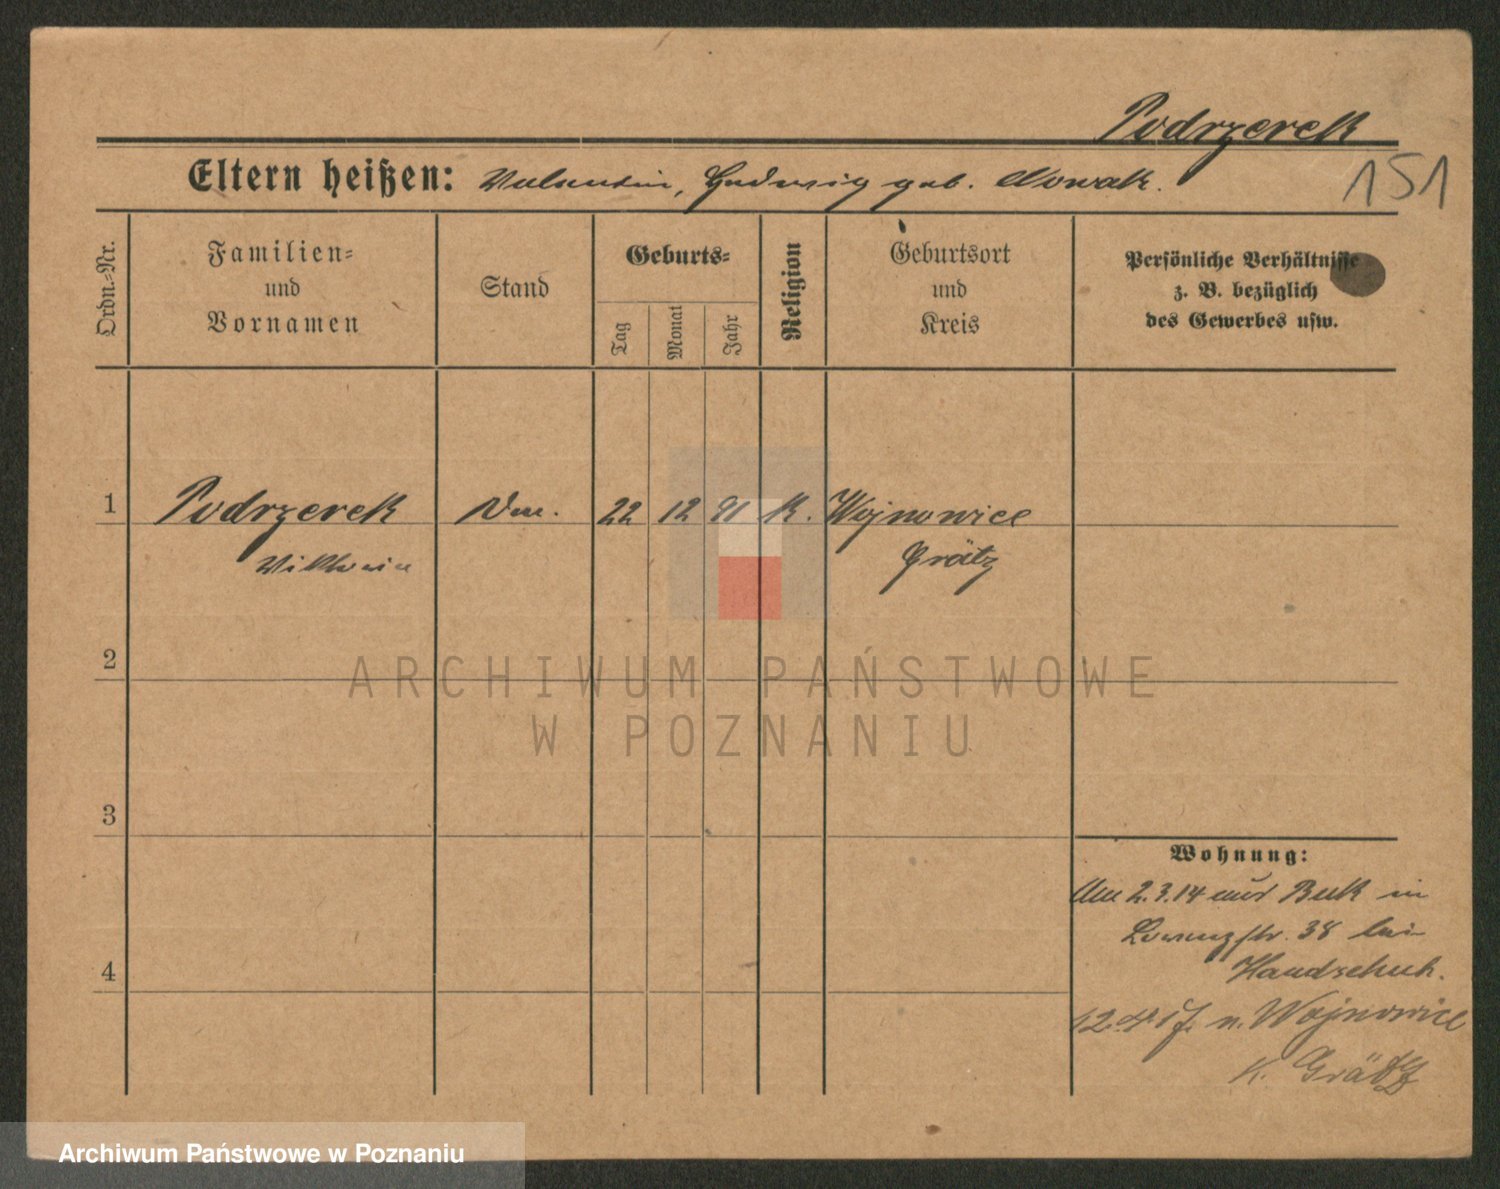 Podrzerek
151
Eltern heißen: Valentin, Hedwig geb. Nowak.
Ordn.-Nr.
Familien-
und
Vornamen
Stand
Geburts-
Tag
Monat
Jahr
Religion
Geburtsort
und
Kreis
Persönliche Verhältnisse
z. B. bezüglich
des Gewerbes usw.
1 Podrzerek 22 12 91 K. Wojnowice
Grätz
2
3
4
Wohnung:
Am 2.3.14 aus Buk in
38 bei
Handschuh.
n. Wojnowice
K. Grätz
ARCHIWUM PAŃSTWOWE
W POZNANIU
Archiwum Państwowe w Poznaniu